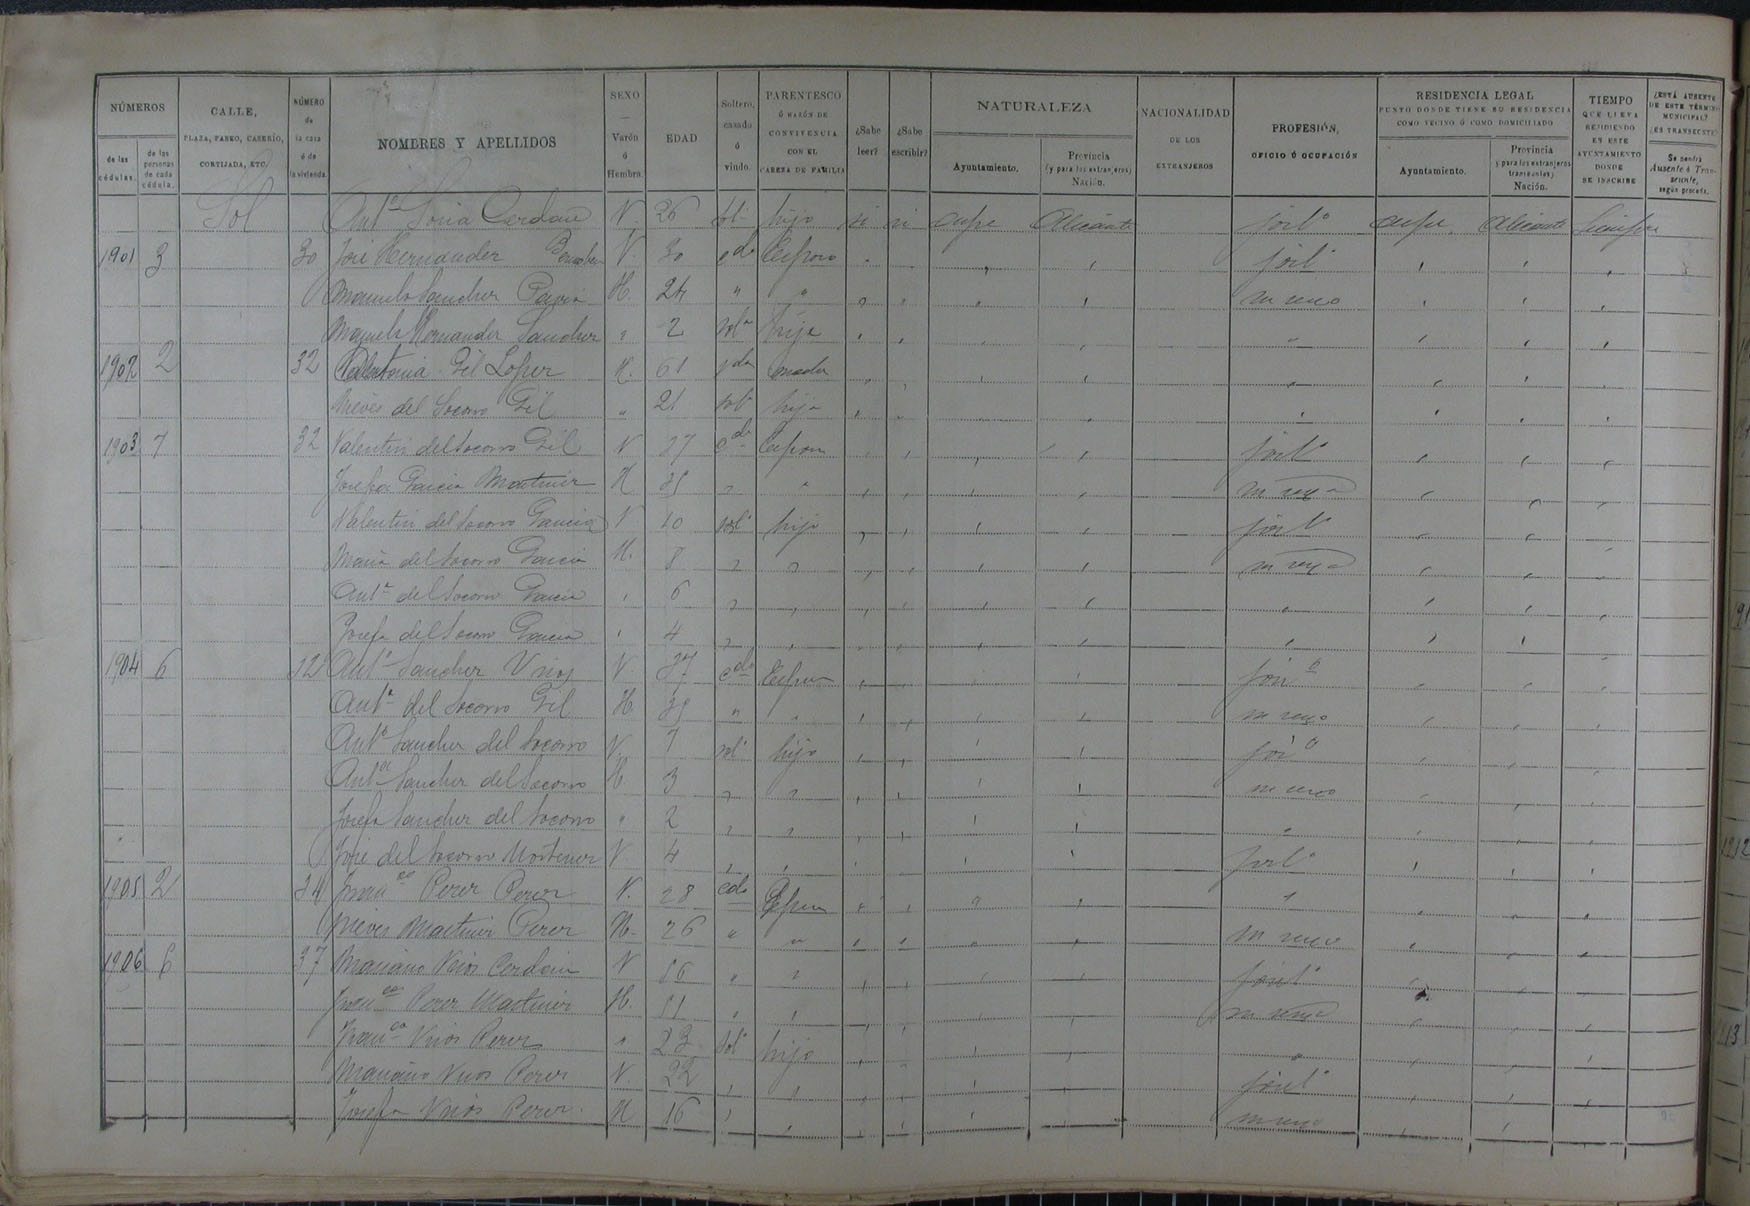 NÚMEROS | CALLE, PLAZA, PASEO, CASERÍO, CORTIJADA, ETC. | NÚMERO de la casa ó de la vivienda. | NOMBRES Y APELLIDOS | SEXO — Varón ó Hembra. | EDAD | Soltero, casado ó viudo. | PARENTESCO Ó RAZÓN DE CONVIVENCIA CON EL CABEZA DE FAMILIA | ¿Sabe leer? | ¿Sabe escribir? | NATURALEZA | NACIONALIDAD DE LOS EXTRANJEROS | PROFESIÓN, OFICIO Ó OCUPACIÓN | RESIDENCIA LEGAL PUNTO DONDE TIENE SU RESIDENCIA COMO VECINO Ó COMO DOMICILIADO | TIEMPO QUE LLEVA RESIDIENDO EN ESTE AYUNTAMIENTO DONDE SE INSCRIBE | ¿ESTÁ AUSENTE DE ESTE TÉRMINO MUNICIPAL? ¿ES TRANSEUNTE?
de las cédulas. | de las personas de cada cédula. | Ayuntamiento. | Provincia (y para los extranjeros) Nación. | Ayuntamiento. | Provincia (y para los extranjeros transeuntes) Nación. | Se pondrá Ausente ó Transeunte, según proceda.
Sol Antº Soria Cerdan V. 26 solº hijo si si Aspe Alicante jorlº Aspe Alicante Siempre
1901 3 30 José Hernandez V. 30 cdº Esposo , , , , jorlº , , ,
Manuela Sanchez H. 24 " " , , , , su sexo , , ,
Manuela Hernandez Sanchez , 2 solª hija , , , , " , , ,
1902 2 32 Gil Lopez H. 61 vda , , , , , , , ,
Nieves del Socorro Gil " 21 solª hija , , , , , , , ,
1903 7 32 Valentin del Socorro Gil V 37 cdº Esposo , , , , jorlº , , ,
Josefa Garcia Martinez H 35 , " , , , , su sexo , , ,
Valentin del Socorro Garcia V 10 solº hijo , , , , jorlº , , ,
Maria del Socorro Garcia H. 8 , , , , , , su sexo , , ,
Antª del Socorro Garcia , 6 , , , , , , , , , ,
Josefa del Socorro Garcia , 4 , , , , , , , , , ,
1904 6 32 Antº Sanchez Urios V. 37 cdº Esposo , , , , jorº , , ,
Antª del Socorro Gil H. 35 " " , , , , su sexo , , ,
Antº Sanchez del Socorro V. 7 solº hijo , , , , jorº , , ,
Antª Sanchez del Socorro H 3 , , , , , , su sexo , , ,
Josefa Sanchez del Socorro " 2 , , , , , , " , , ,
José del Socorro Martinez V 4 , , , , , , jorlº , , ,
1905 2 34 Franco Perez Perez V. 28 cdº Esposo , , , , , , , ,
Nieves Martinez Perez H. 26 " " , , , , su sexo , , ,
1906 6 37 Mariano Urios Cerdan V 56 " , , , , , jorlº , , ,
Franca Perez Martinez H. 51 , , , , , , su sexo , , ,
Franca Urios Perez " 23 solª hija , , , , " , , ,
Mariano Urios Perez V. 22 , , , , , , jorlº , , ,
Josefa Urios Perez H 16 , , , , , , su sexo , ,